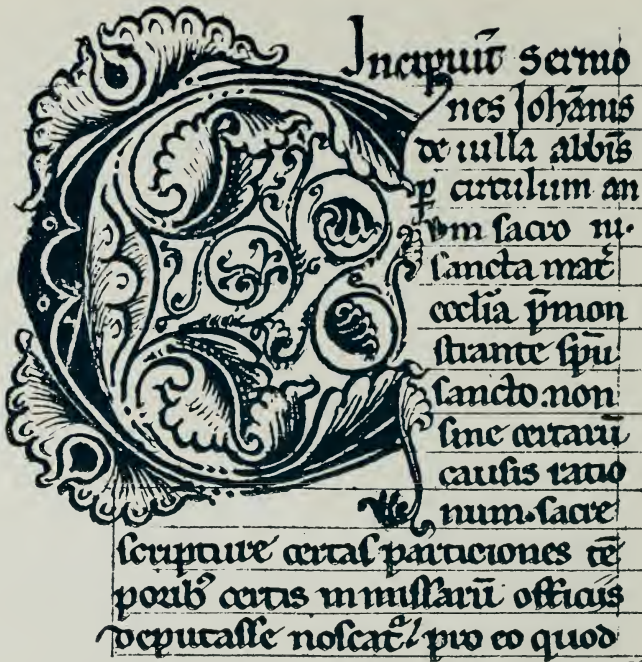 Incipiu͞t sermo
nes Joha͞nis
de uilla abb͞is
p̱ circulum an
sacro
sancta mat͞
eccl͞ia p̄mon
strante sp͞u
sancto. non
sine certaru͞
causis ratio
num. sacre
scripture certas particiones te͞
porib⁹ certis in missaru͞ officiis
deputasse noscat͞ pro eo quod